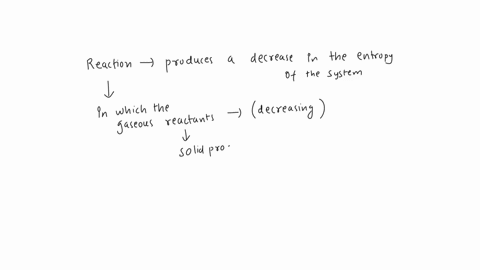 Reaction → produces a decrease in the entropy
of the system
↓
In which the
gaseous reactants → (decreasing)
↓
solid pro.